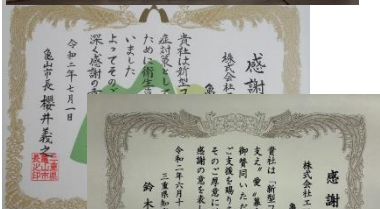 感謝
株式会社
亀
貴社は新型コ
症対策として
ために衛生
いました
よってそのご
深く感謝の
令和二年七月一日
亀山市長 櫻井義之
感謝
株式会社エ
亀
貴社は「新型コ
支え〝愛〟募
御賛同いただ
ご支援を賜り
そのご厚意に
感謝の意を表し
令和二年六月十
三重県知
鈴木